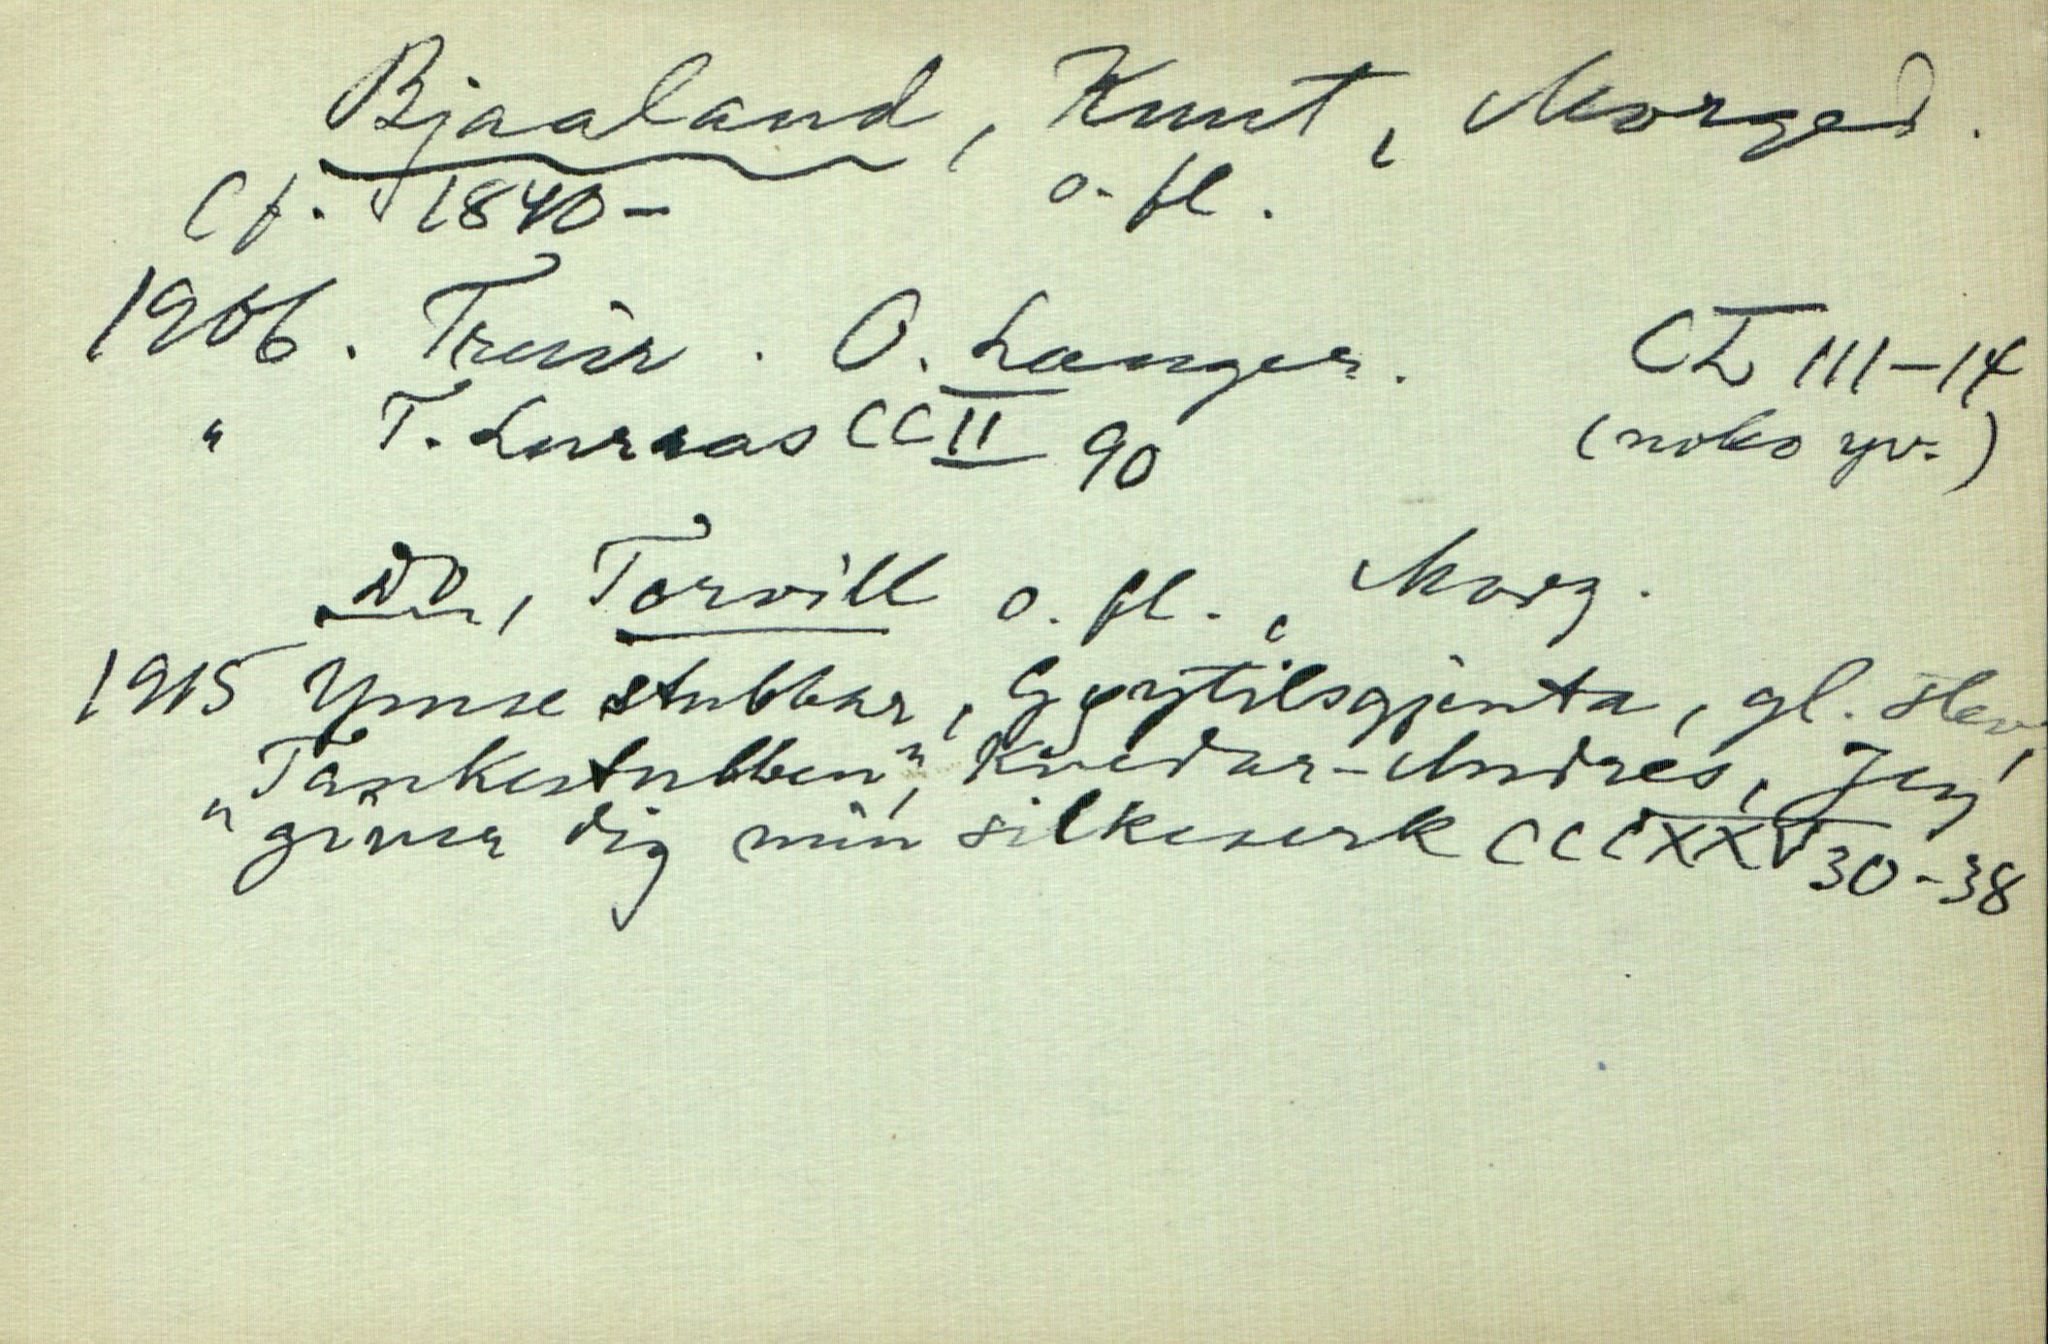 Bjaaland, Knut, Morged.
Cf. 1840- o. fl.
1906. Truir. O. Langer. CL 111-14
" T. Lurraas CCII 90 (noko yv.)
Do, Torvill o. fl., Morg.
1915 Ymse stubbar, Gyrytilsgjenta, gl. slev,
"Tankestubben", Kvedar-Andres, Jeg
giver dig min silkeserk CCCXXV 30-38